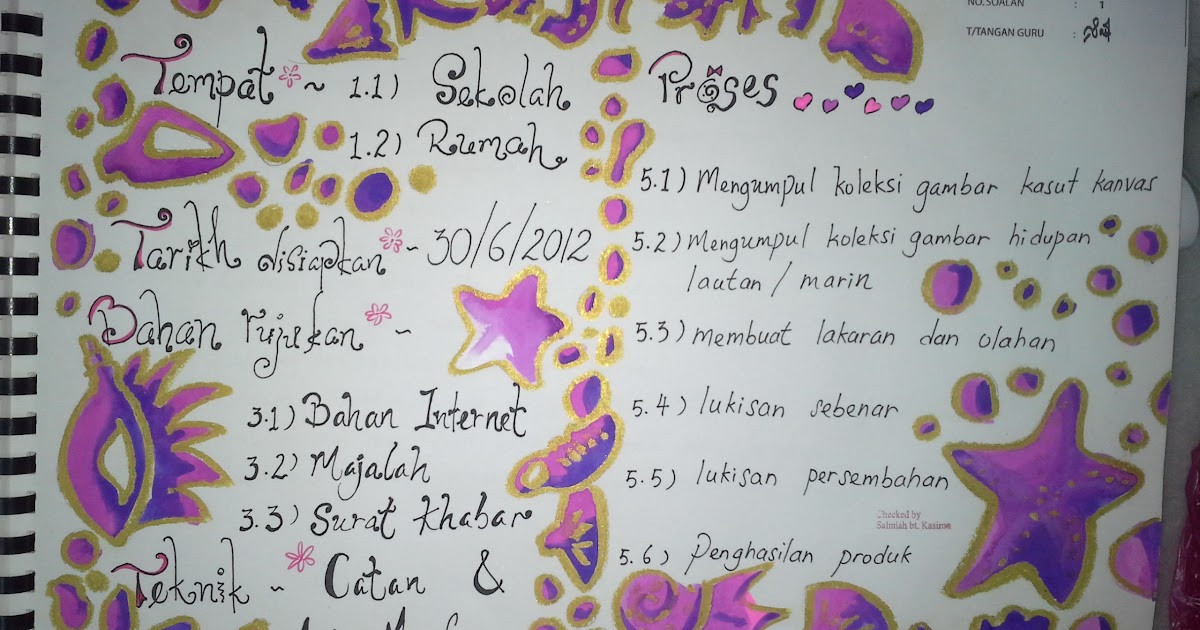 NO. SOALAN : 1
T/TANGAN GURU :
Tempat ~ 1.1) Sekolah
1.2) Rumah
Tarikh disiapkan ~ 30/6/2012
Bahan rujukan ~
3.1) Bahan Internet
3.2) Majalah
3.3) Surat khabar
Teknik ~ Catan &
Proses
5.1) Mengumpul koleksi gambar kasut kanvas
5.2) Mengumpul koleksi gambar hidupan
lautan / marin
5.3) membuat lakaran dan olahan
5.4) lukisan sebenar
5.5) lukisan persembahan
Checked by
Salmiah bt. Kasimin
5.6) Penghasilan produk